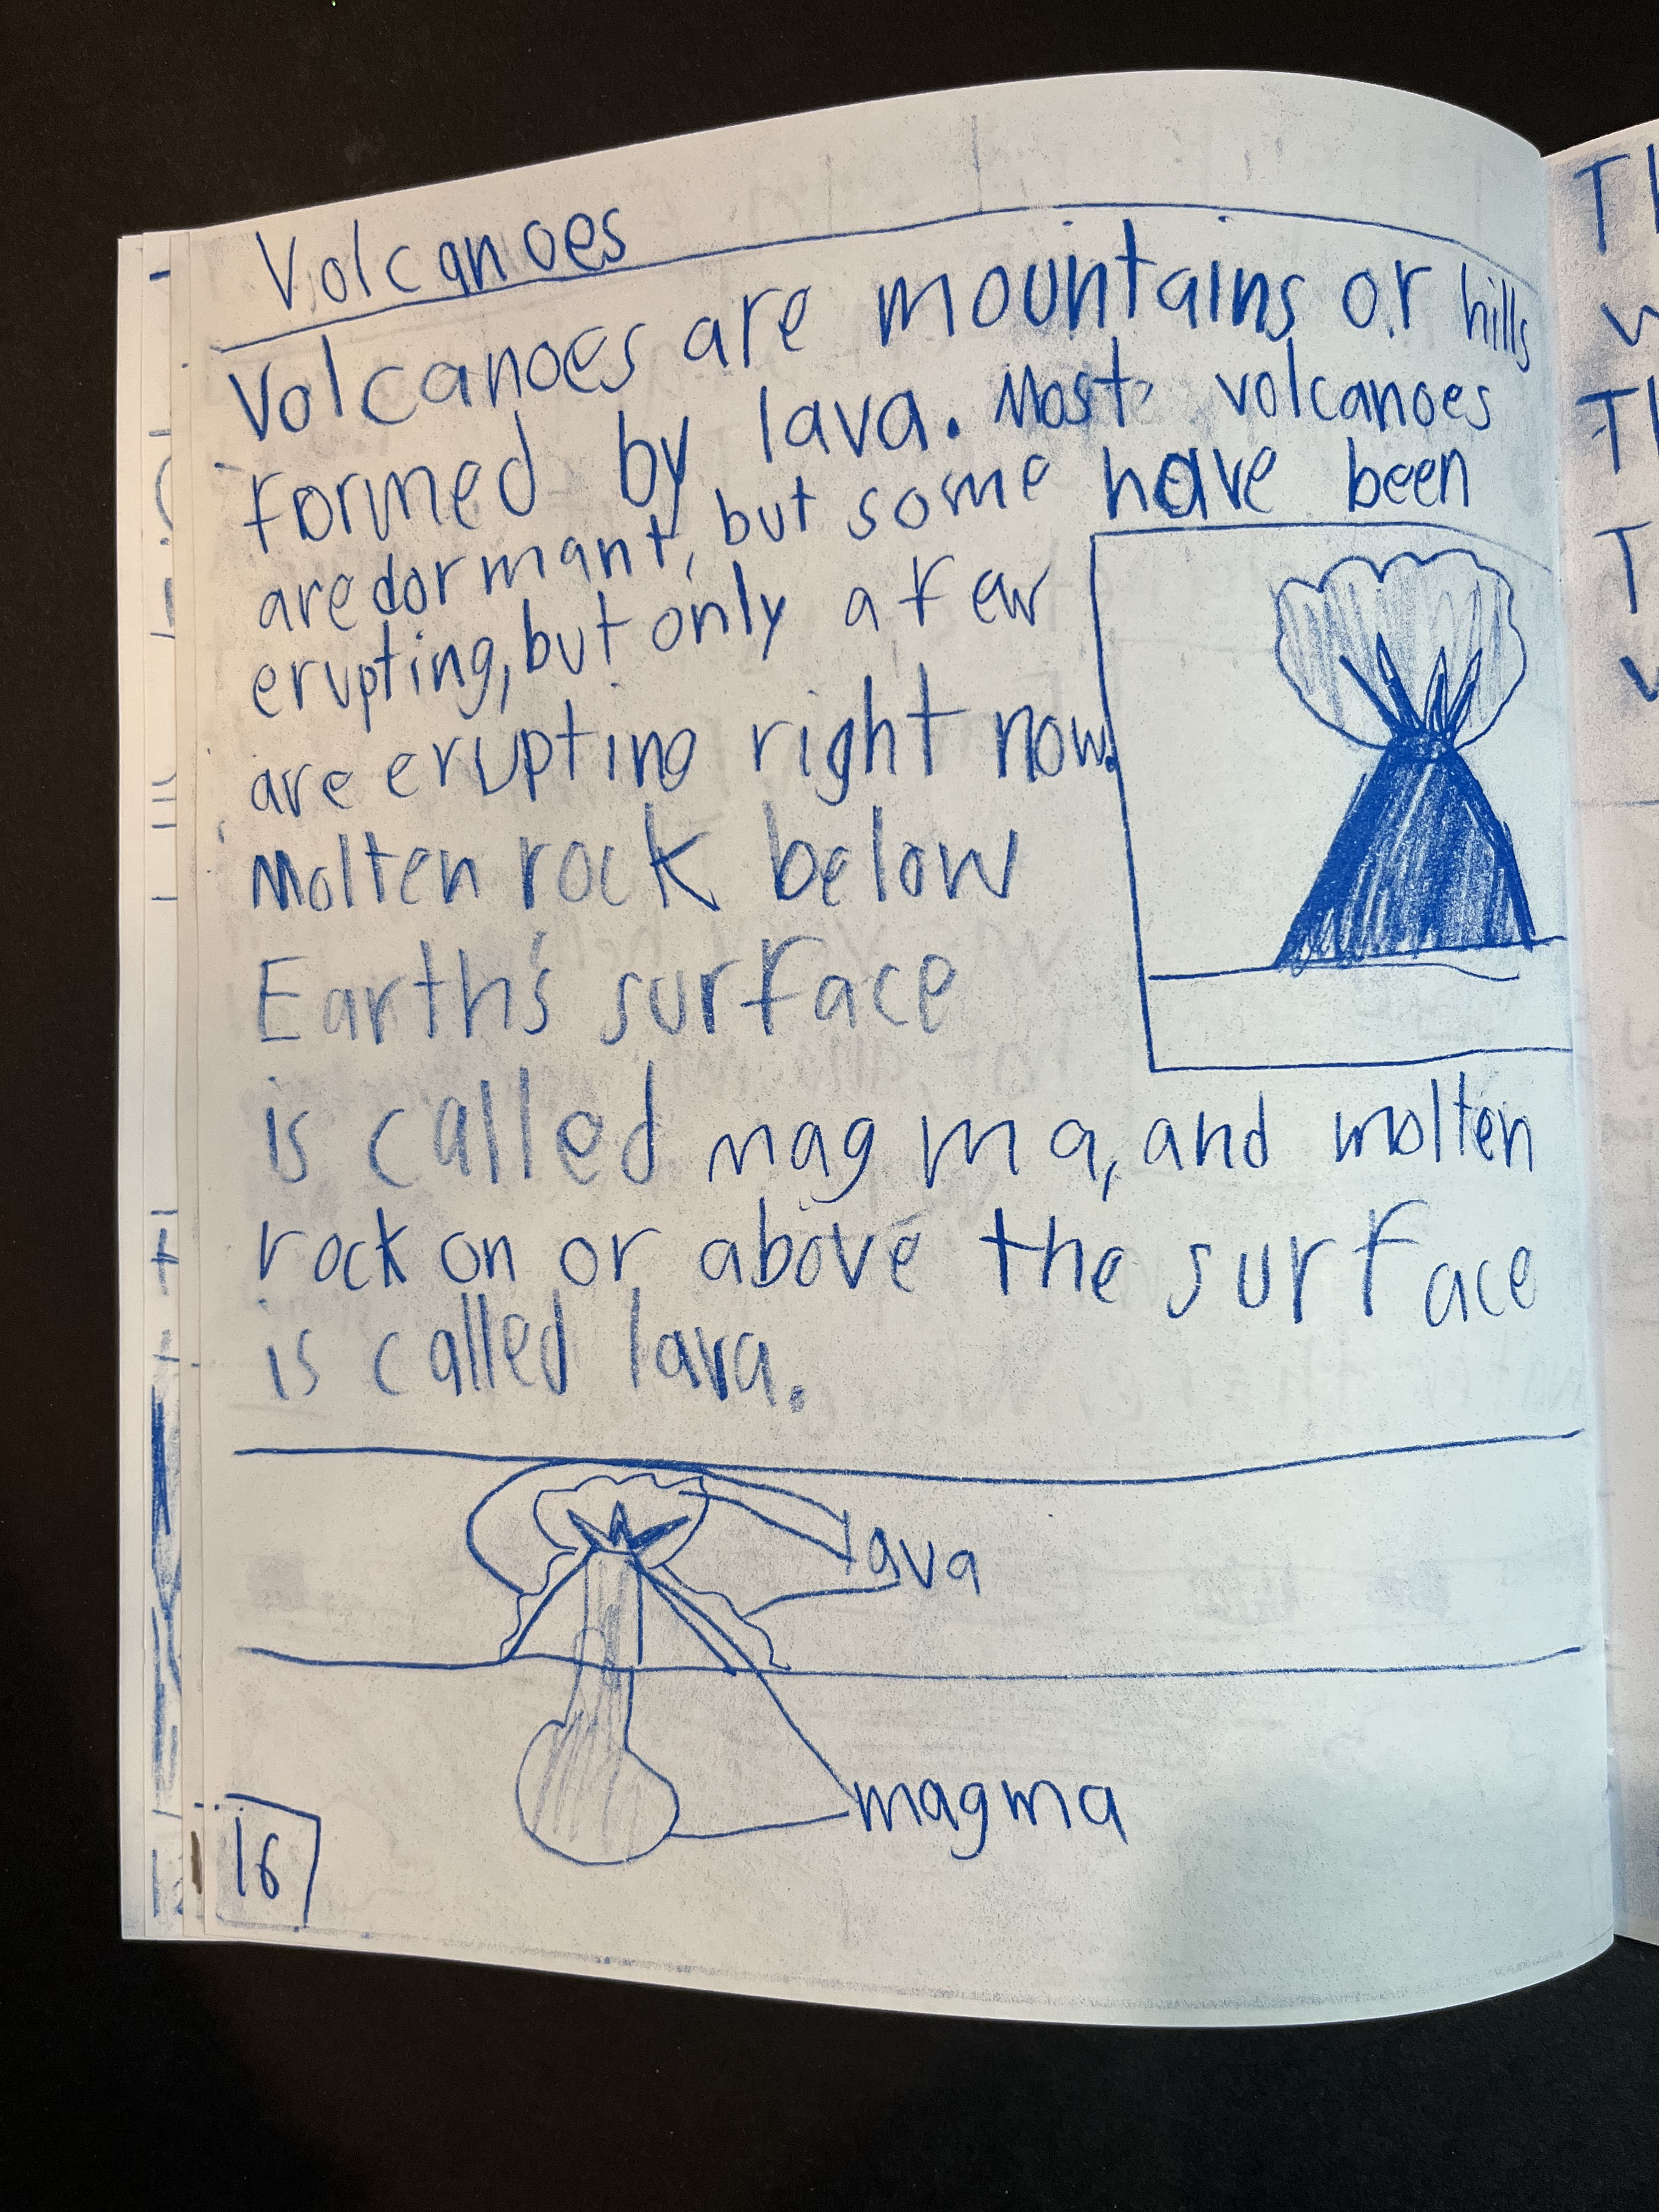 Volcanoes
Volcanoes are mountains or hills
formed by lava. Most volcanoes
are dormant, but some have been
erupting, but only a few
are erupting right now.
Molten rock below
Earth's surface
is called magma, and molten
rock on or above the surface
is called lava.
lava
magma
16